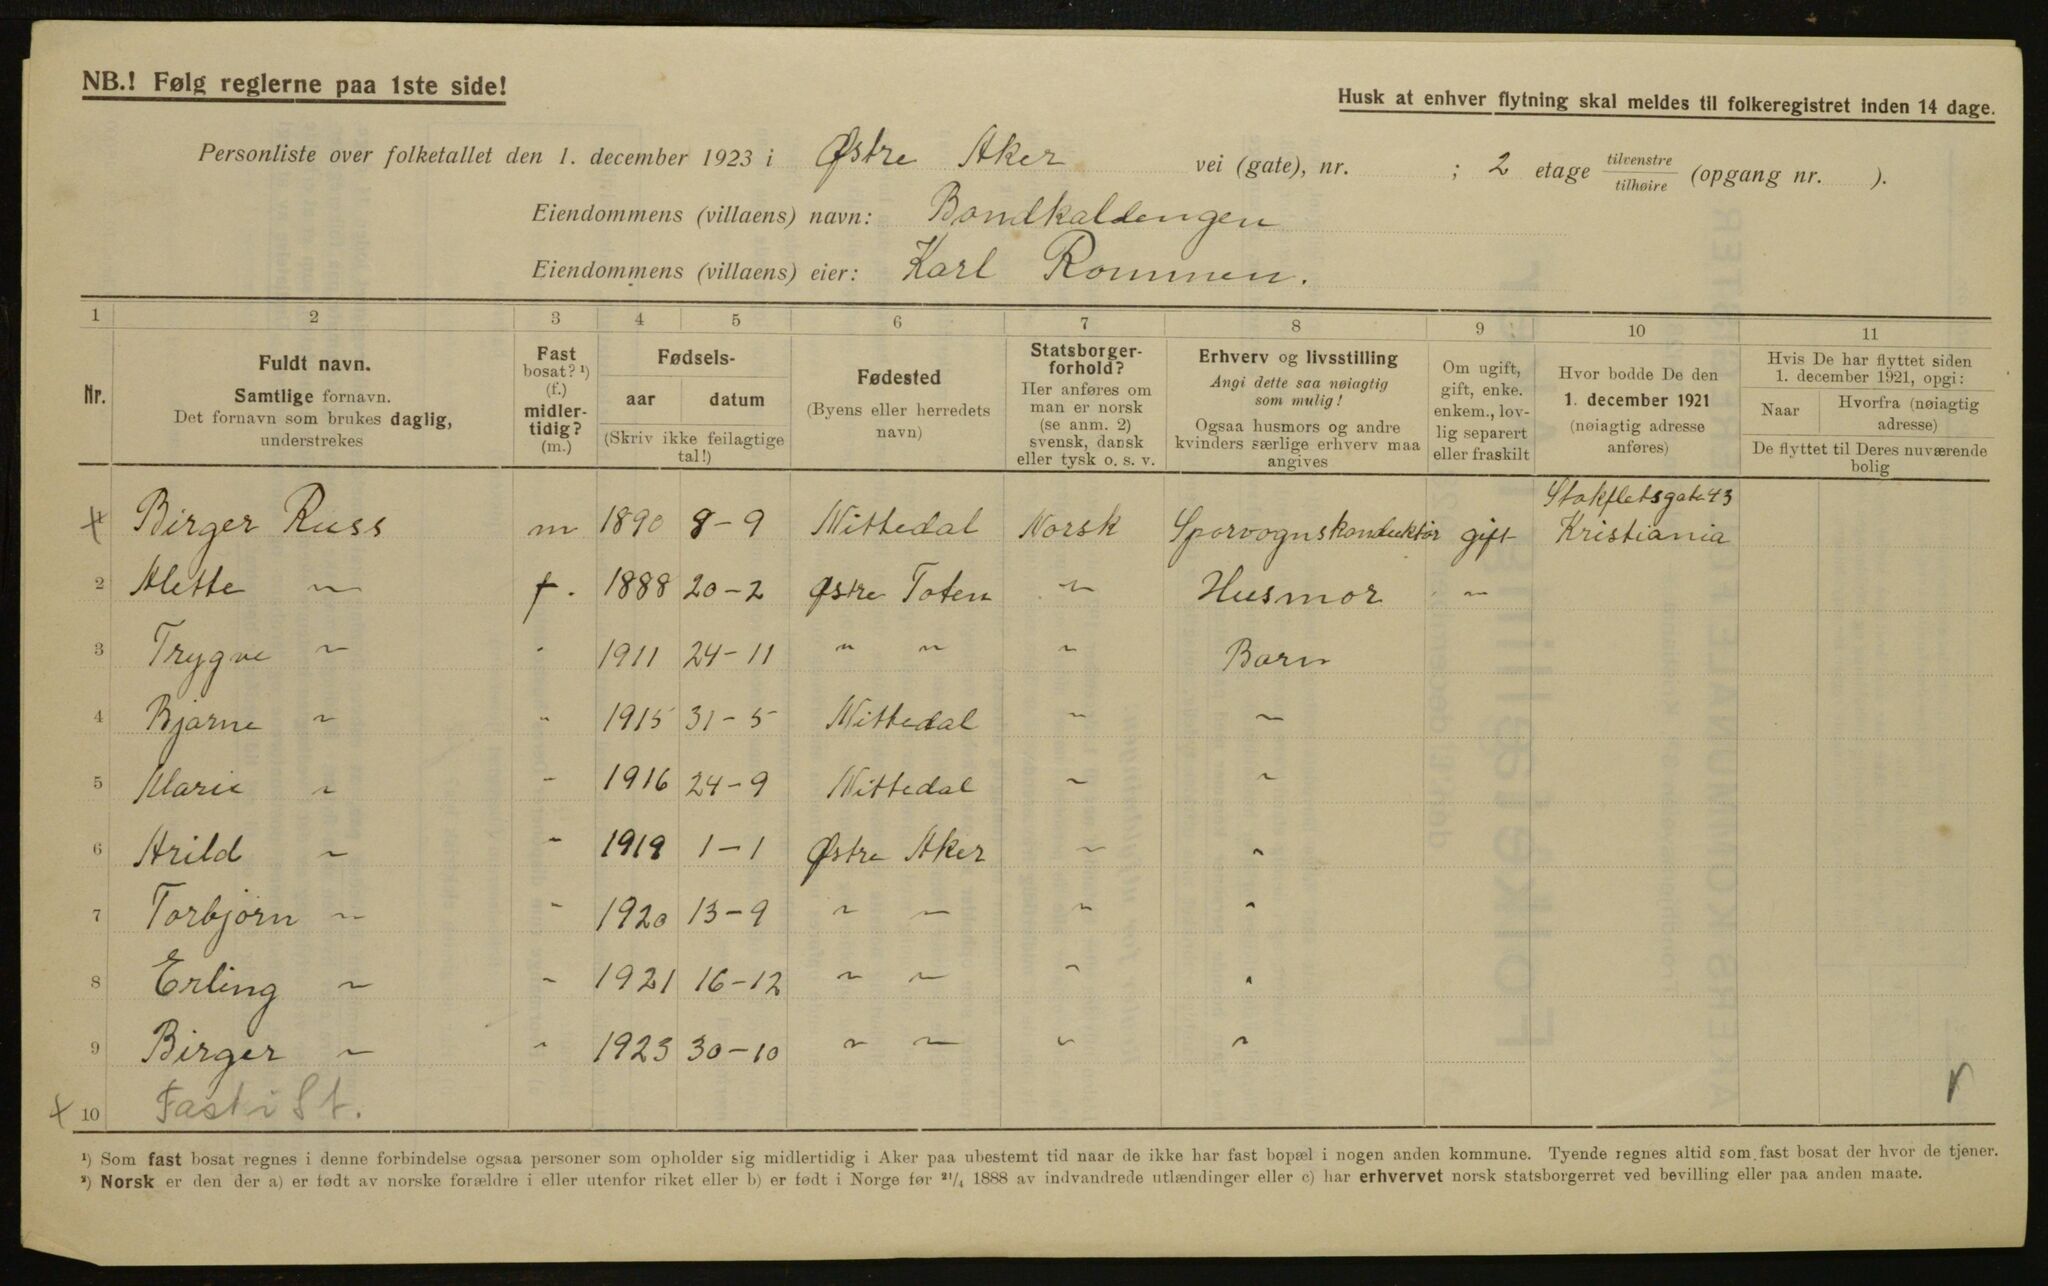 NB.! Følg reglerne paa 1ste side!
Husk at enhver flytning skal meldes til folkeregistret inden 14 dage.
Personliste over folketallet den 1. december 1923 i Østre Aker vei (gate), nr. ; 2 etage tilvenstre / tilhøire (opgang nr. ).
Eiendommens (villaens) navn: Bondkaldengen
Eiendommens (villaens) eier: Karl Rommen.
1 2 3 4 5 6 7 8 9 10 11
Nr.
Fuldt navn.
Samtlige fornavn.
Det fornavn som brukes daglig,
understrekes
Fast
bosat? ¹)
(f.)
midler-
tidig?
(m.)
Fødsels-
aar datum
(Skriv ikke feilagtige
tal!)
Fødested
(Byens eller herredets
navn)
Statsborger-
forhold?
Her anføres om
man er norsk
(se anm. 2)
svensk, dansk
eller tysk o. s. v.
Erhverv og livsstilling
Angi dette saa nøiagtig
som mulig!
Ogsaa husmors og andre
kvinders særlige erhverv maa
angives
Om ugift,
gift, enke,
enkem., lov-
lig separert
eller fraskilt
Hvor bodde De den
1. december 1921
(nøiagtig adresse
anføres)
Hvis De har flyttet siden
1. december 1921, opgi:
Naar Hvorfra (nøiagtig
adresse)
De flyttet til Deres nuværende
bolig
Stokfletsgate 43
1 Birger Russ m 1890 8-9 Nittedal Norsk Sporvognskonduktør gift Kristiania
2 Alette " f. 1888 20-2 Østre Toten " Husmor "
3 Trygve " " 1911 24-11 " " " Barn
4 Bjarne " " 1915 31-5 Nittedal " "
5 Marie " " 1916 24-9 Nittedal " "
6 Arild " " 1919 1-1 Østre Aker " "
7 Torbjørn " " 1920 13-9 " " " "
8 Erling " " 1921 16-12 " " " "
9 Birger " " 1923 30-10 " " " "
10 Fast i St.
¹) Som fast bosat regnes i denne forbindelse ogsaa personer som opholder sig midlertidig i Aker paa ubestemt tid naar de ikke har fast bopæl i nogen anden kommune. Tyende regnes altid som fast bosat der hvor de tjener.
²) Norsk er den der a) er født av norske forældre i eller utenfor riket eller b) er født i Norge før ²¹/₄ 1888 av indvandrede utlændinger eller c) har erhvervet norsk statsborgerret ved bevilling eller paa anden maate.